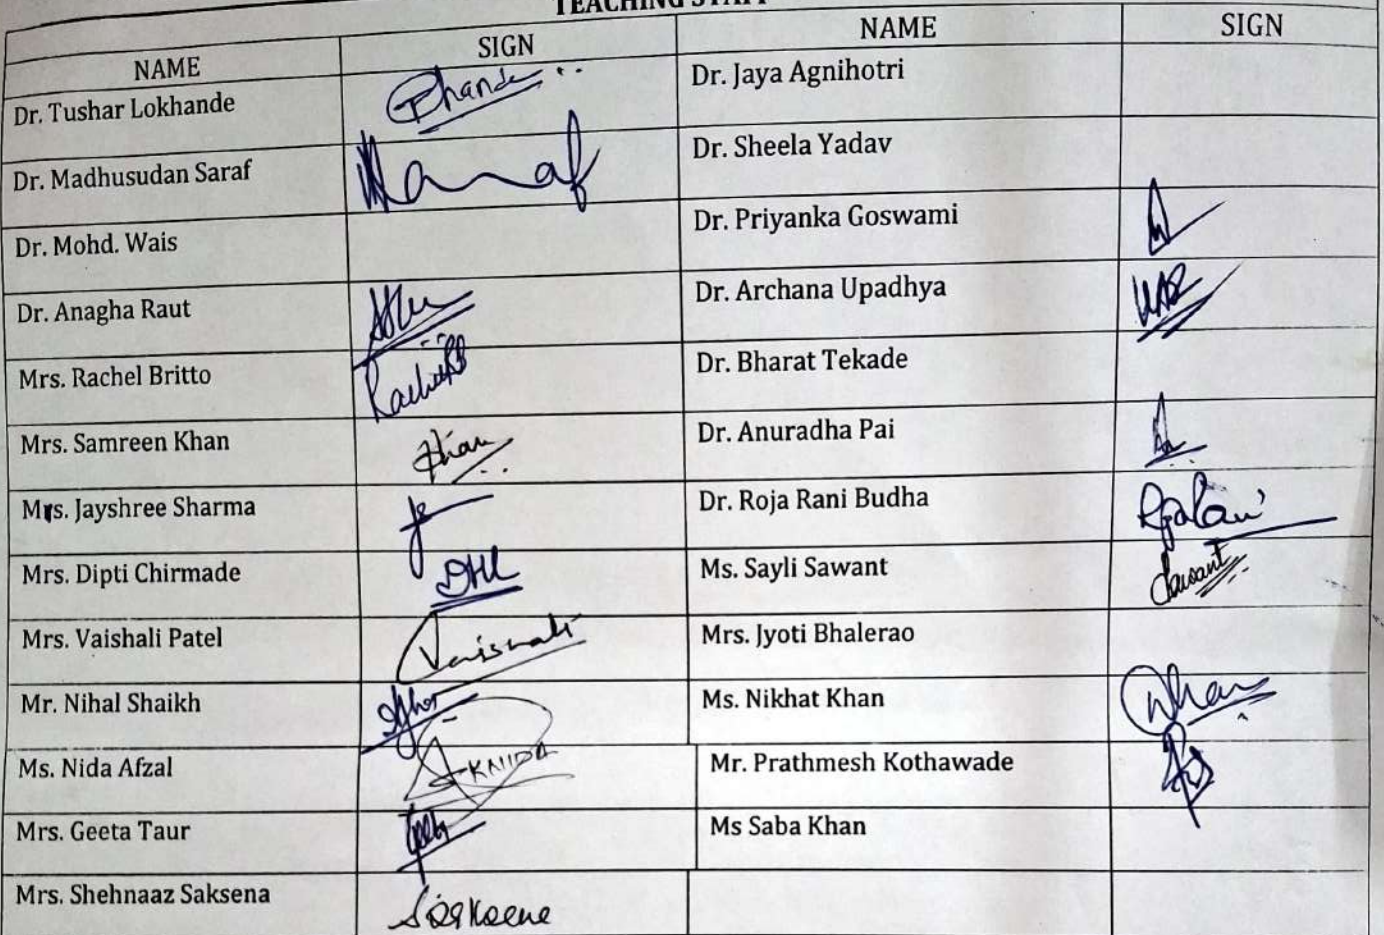 TEACHING STAFF
NAME SIGN NAME SIGN
Dr. Tushar Lokhande Dr. Jaya Agnihotri
Dr. Madhusudan Saraf Dr. Sheela Yadav
Dr. Mohd. Wais Dr. Priyanka Goswami
Dr. Anagha Raut Dr. Archana Upadhya
Mrs. Rachel Britto Dr. Bharat Tekade
Mrs. Samreen Khan Khan Dr. Anuradha Pai
Mrs. Jayshree Sharma Dr. Roja Rani Budha
Mrs. Dipti Chirmade Ms. Sayli Sawant Sawant
Mrs. Vaishali Patel Vaishali Mrs. Jyoti Bhalerao
Mr. Nihal Shaikh Ms. Nikhat Khan
Ms. Nida Afzal KNIDA Mr. Prathmesh Kothawade
Mrs. Geeta Taur Ms Saba Khan
Mrs. Shehnaaz Saksena